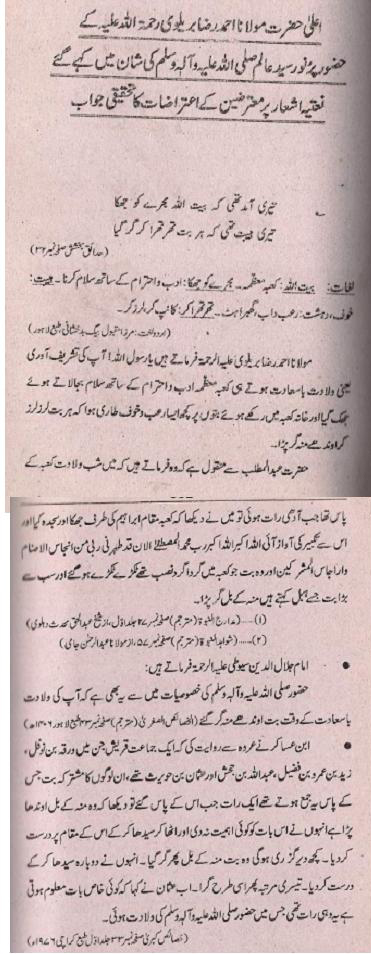 اعلیٰ حضرت مولانا احمد رضا بریلوی رحمۃ اللہ علیہ کے
حضور پرنور سید عالم صلی اللہ علیہ وآلہ وسلم کی شان میں کہے گئے
نعتیہ اشعار پر معترضین کے اعتراضات کا تحقیقی جواب
تیری آمد تھی کہ بیت اللہ مجرے کو جھکا
تیری ہیبت تھی کہ ہر بت تھرتھرا کر گر گیا
(حدائق بخشش صفحہ نمبر ۳۶)
لغات: بیت اللہ: کعبہ معظمہ۔ مجرے کو جھکا: ادب و احترام کے ساتھ سلام کرنا۔ ہیبت:
خوف، دہشت، رعب داب، گھبراہٹ۔ تھرتھرا کر: کانپ کر، لرز کر۔
(اردو لغت: مرزا مقبول بیگ بدخشانی طبع لاہور)
مولانا احمد رضا بریلوی علیہ الرحمۃ فرماتے ہیں یا رسول اللہ! آپ کی تشریف آوری
یعنی ولادت باسعادت ہوتے ہی کعبہ معظمہ ادب و احترام کے ساتھ سلام بجا لاتے ہوئے
جھک گیا اور خانہ کعبہ میں رکھے ہوئے بتوں پر کچھ ایسا رعب و خوف طاری ہوا کہ ہر بت لرز لرز
کر اوندھے منہ گر پڑا۔
حضرت عبدالمطلب سے منقول ہے کہ وہ فرماتے ہیں کہ میں شب ولادت کعبہ کے
پاس تھا جب آدھی رات ہوئی تو میں نے دیکھا کہ کعبہ مقام ابراہیم کی طرف جھکا اور سجدہ کیا اور
اس سے تکبیر کی آواز آئی اللہ اکبر اللہ اکبر رب محمد المصطفیٰ الان قد طہرنی ربی من انجاس الاصنام
وارجاس المشرکین اور وہ بت جو کعبہ میں گرداگرد نصب تھے ٹکڑے ٹکڑے ہو گئے اور سب سے
بڑا بت جسے ہبل کہتے ہیں منہ کے بل گر پڑا۔
(۱)۔۔۔۔ (مدارج النبوۃ (مترجم) صفحہ نمبر ۲۷ جلد اول، از شیخ عبدالحق محدث دہلوی)
(۲)۔۔۔۔ (شواہد النبوۃ (مترجم) صفحہ نمبر ۵۷، از مولانا عبدالرحمٰن جامی)
● امام جلال الدین سیوطی علیہ الرحمۃ فرماتے ہیں:
حضور صلی اللہ علیہ وآلہ وسلم کی خصوصیات میں سے یہ بھی ہے کہ آپ کی ولادت
باسعادت کے وقت بت اوندھے منہ گر گئے (الخصائص الصغریٰ (مترجم) صفحہ نمبر ۳۳ طبع لاہور ۱۴۰۶ھ)
● ابن عساکر نے عروہ سے روایت کی کہ ایک جماعت قریش جن میں ورقہ بن نوفل،
زید بن عمرو بن نفیل، عبداللہ بن جحش اور عثمان بن حویرث تھے، ان لوگوں کا مشترکہ بت جس
کے پاس یہ جمع ہوتے تھے ایک رات جب اس کے پاس گئے تو دیکھا کہ وہ منہ کے بل اوندھا
پڑا ہے انہوں نے اس بات کو کوئی اہمیت نہ دی اور اٹھا کر سیدھا کر کے اس کے مقام پر درست
کر دیا۔ کچھ دیر گزری ہوگی وہ بت منہ کے بل پھر گر گیا۔ انہوں نے دوبارہ سیدھا کر کے
درست کر دیا۔ تیسری مرتبہ پھر اسی طرح گرا۔ اب عثمان نے کہا کہ کوئی خاص بات معلوم ہوتی
ہے یہ وہی رات تھی جس میں حضور صلی اللہ علیہ وسلم کی ولادت ہوئی۔
(خصائص کبریٰ صفحہ نمبر ۳۳ جلد اول طبع کراچی ۱۹۷۶ء)